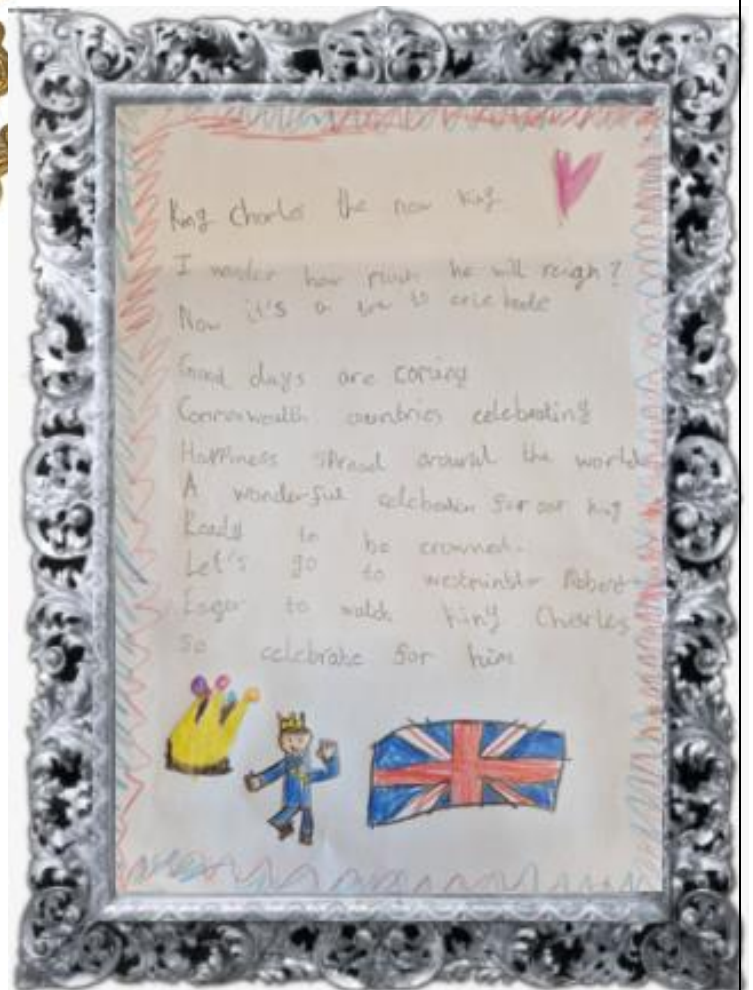 King Charles the new king
I wonder how much he will reign?
Now it's a time to celebrate
Good days are coming
Commonwealth countries celebrating
Happiness spread around the world
A wonderful celebration for our king
Ready to be crowned.
Let's go to westminster
Eager to watch king Charles
So celebrate for him